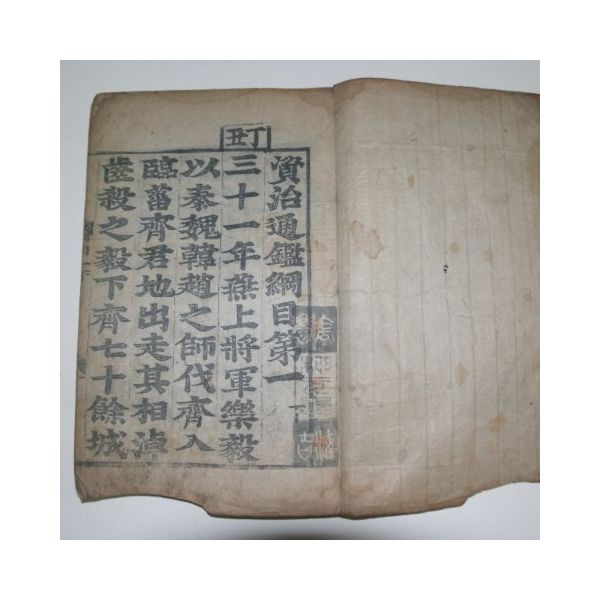 資治通鑑綱目第一 下
丁丑
三十一年燕上將軍樂毅
以秦魏韓趙之師伐齊入
臨菑齊君地出走其相淖
齒殺之毅下齊七十餘城